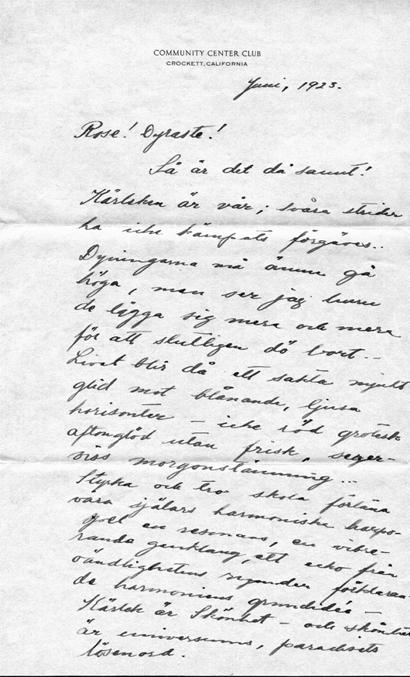 COMMUNITY CENTER CLUB
CROCKETT, CALIFORNIA
Juni, 1923.
Rose! Dyraste!
Så är det då sannt!
Kärleken är vår; svåra strider
ha icke kämpats förgäves..
Dyningarna må ännu gå
höga, men ser jag huru
de lägga sig mera och mera
för att slutligen dö bort...
Livet blir då ett sakta mjukt
glid mot blånande, ljusa
horisonter – icke röd grotesk
aftonglöd utan frisk, seger-
viss morgonstämning...
Styrka och tro skola förläna
våra själars harmoniska harpo-
spel en resonans, en vibre-
rande genklang, ett eko från
oändlighetens rymder förklaran-
de harmoniens grundidé –
Kärlek är Skönhet – och skönhet
är universums, paradisets
lösenord.